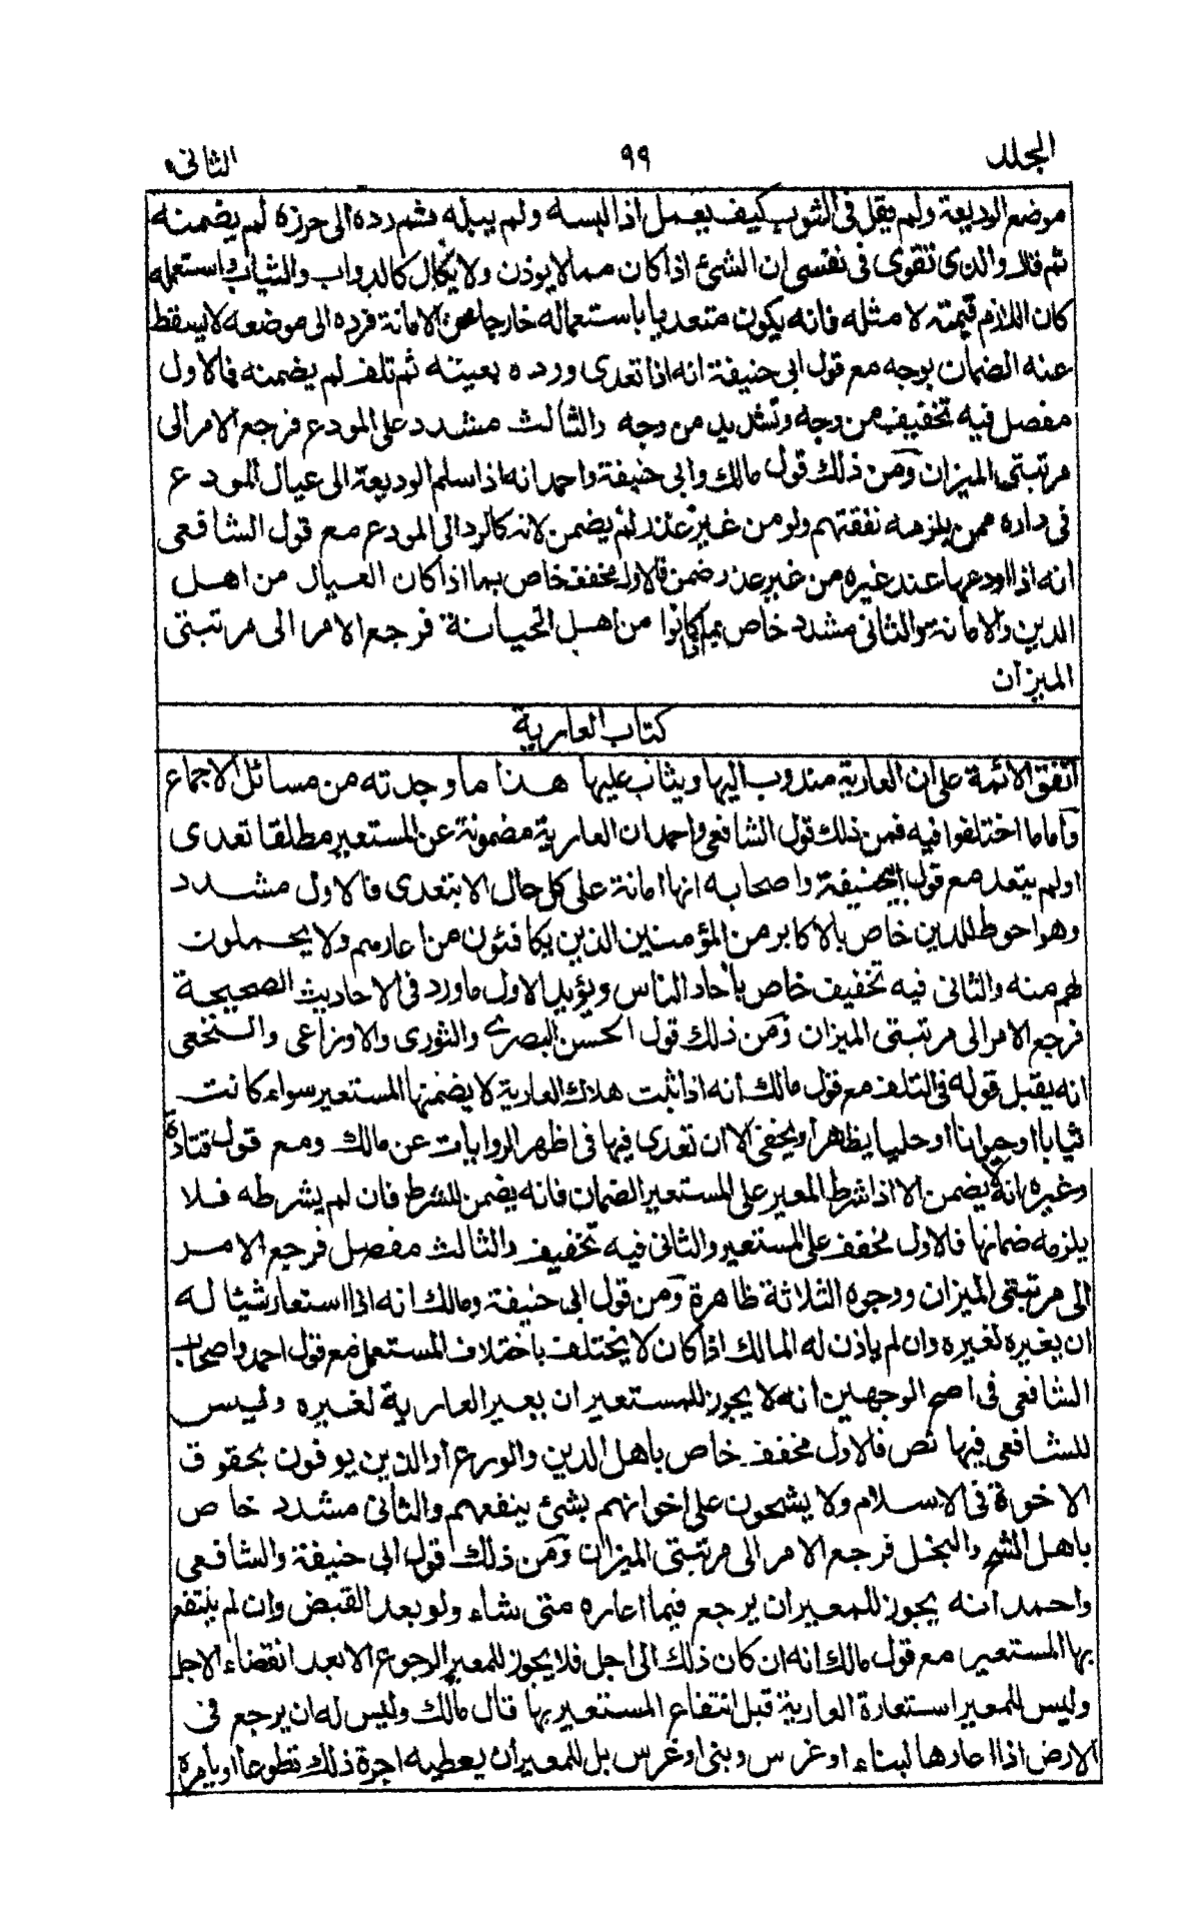 المجلد ٩٩ الثانى
موضع الوديعة ولم يقل فى الثوب كيف يعمل اذا لبسه ولم يبله ثم رده الى حرزه لم يضمنه
ثم قال والذى تقوى فى نفسى ان الشئ اذا كان مما لا يوذن ولا يكال كالدواب والثياب فاستعمله
كان اللازم قيمته لا مثله فانه يكون متعديا باستعماله خارجا عن الامانة فرده الى موضعه لا يسقط
عنه الضمان بوجه مع قول ابى حنيفة انه اذا تعدى ورده بعينه ثم تلف لم يضمنه فالاول
مفصل فيه تخفيف من وجه وتشديد من وجه والثالث مشدد على المودع فرجع الامر الى
مرتبتى الميزان ومن ذلك قول مالك وابى حنيفة واحمد انه اذا سلم الوديعة الى عيال المودع
فى داره ممن يلزمه نفقتهم ولو من غير عذر لم يضمن لانه كالرد الى المودع مع قول الشافعى
انه اذا اودعها عند غيره من غير عذر ضمن فالاول مخفف خاص بما اذا كان العيال من اهل
الدين والامانة والثانى مشدد خاص بما اذا كانوا من اهل الخيانة فرجع الامر الى مرتبتى
الميزان
كتاب العارية
اتفق الائمة على ان العارية مندوب اليها ويثاب عليها هذا ما وجدته من مسائل الاجماع
واما ما اختلفوا فيه فمن ذلك قول الشافعى واحمد ان العارية مضمونة عن المستعير مطلقا تعدى
او لم يتعد مع قول ابى حنيفة واصحابه انها امانة على كل حال الا بتعدى فالاول مشدد
وهو احوط للدين خاص بالاكابر من المؤمنين الذين يكافئون من اعارهم ولا يحملون
لهم منه والثانى فيه تخفيف خاص بآحاد الناس ويؤيد الاول ما ورد فى الاحاديث الصحيحة
فرجع الامر الى مرتبتى الميزان ومن ذلك قول الحسن البصرى والثورى والاوزاعى والنخعى
انه يقبل قوله فى التلف مع قول مالك انه اذا ثبت هلاك العارية لا يضمنها المستعير سواء كانت
ثيابا او حيوانا او حليا يظهر او يخفى الا ان تعدى فيها فى اظهر الروايات عن مالك ومع قول قتادة
وغيره انه لا يضمن الا اذا شرط المعير على المستعير الضمان فانه يضمن للشرط فان لم يشرطه فلا
يلزمه ضمانها فالاول مخفف على المستعير والثانى فيه تخفيف والثالث مفصل فرجع الامر
الى مرتبتى الميزان ووجوه الثلاثة ظاهرة ومن قول ابى حنيفة ومالك انه اذا استعار شيئا له
ان يعيره لغيره وان لم ياذن له المالك اذا كان لا يختلف باختلاف المستعمل مع قول احمد واصحاب
الشافعى فى اصح الوجهين انه لا يجوز للمستعير ان يعير العارية لغيره وليس
للشافعى فيها نص فالاول مخفف خاص باهل الدين والورع او الذين يوفون بحقوق
الاخوة فى الاسلام ولا يشحون على اخوانهم بشئ ينفعهم والثانى مشدد خاص
باهل الشح والبخل فرجع الامر الى مرتبتى الميزان ومن ذلك قول ابى حنيفة والشافعى
واحمد انه يجوز للمعير ان يرجع فيما اعاره متى شاء ولو بعد القبض وان لم ينتفع
بها المستعير مع قول مالك انه ان كان ذلك الى اجل فلا يجوز للمعير الرجوع الا بعد انقضاء الاجل
وليس للمعير استعارة العارية قبل انتفاع المستعير بها قال مالك وليس له ان يرجع فى
الارض اذا اعارها لبناء او غرس وبنى او غرس بل للمعير ان يعطيه اجرة ذلك تطوعا او يأمره